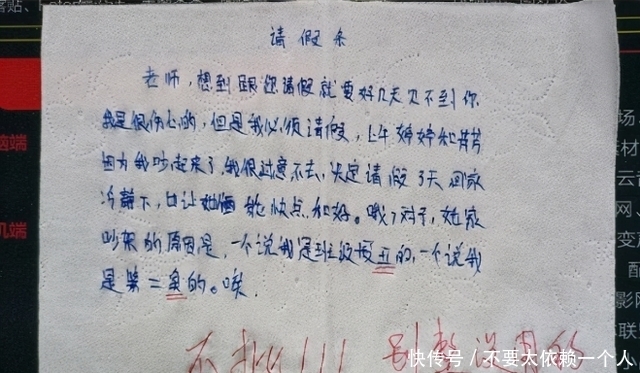 请假条
老师，想到跟您请假就要好几天见不到你
我是很伤心的，但是我必须请假，上午婷婷和芳芳
因为我吵起来了，我很过意不去，决定请假3天回家
冷静下，也让她俩能快点和好。哦，对了，她家
吵架的原因是，一个说我是班级最丑的，一个说我
是第二丑的。唉，
不批！！！别整没用的
快传号／不要太依赖一个人
脑端
机端